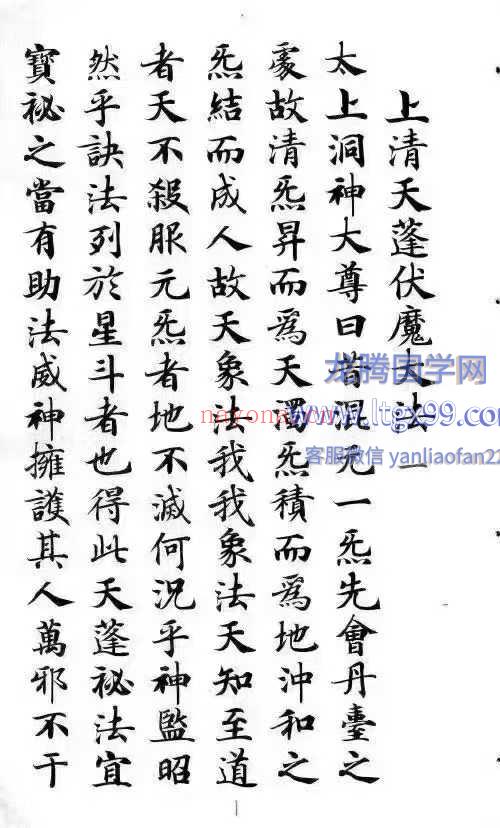 上清天蓬伏魔大法一
太上洞神大尊曰昔混元一炁先會丹臺之
處故清炁昇而為天濁炁積而為地沖和之
炁結而成人故天象法我我象法天知至道
者天不殺服元炁者地不滅何況乎神監昭
然乎訣法列於星斗者也得此天蓬秘法宜
寶祕之當有助法威神擁護其人萬邪不干
龙腾国学网
www.ltgx99.com
客服微信 yanliaofan22